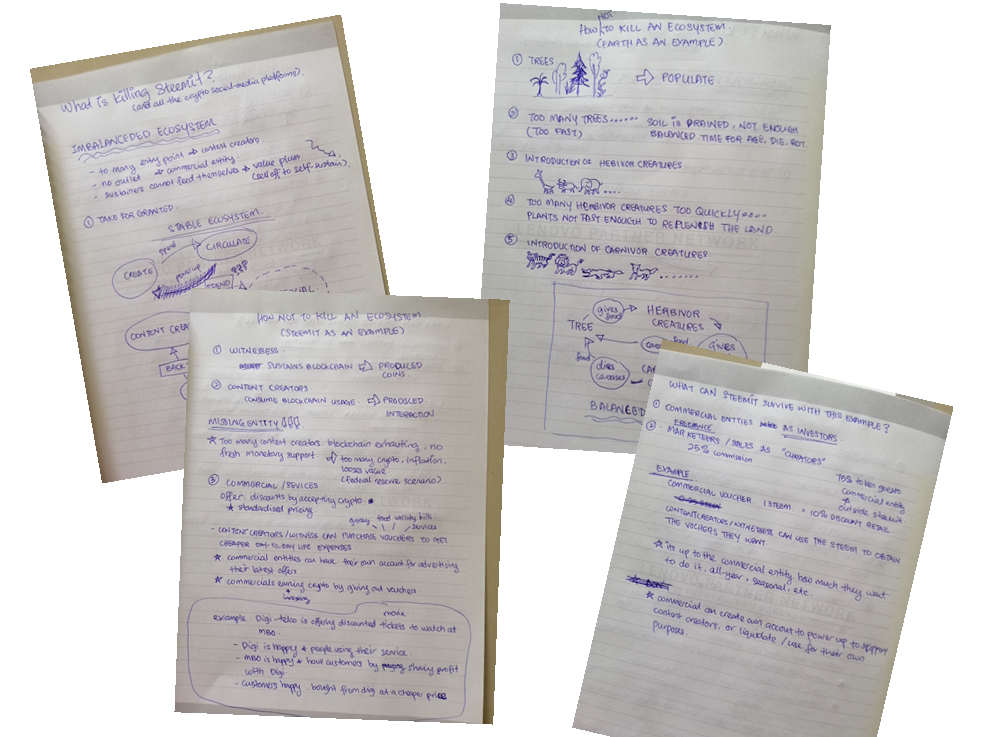 What is killing Steemit?
(and all the crypto social-media platforms).
IMBALANCEDED ECOSYSTEM
- to many entry point → content creators.
- no outlet → commercial entity
- sustainers cannot feed themselves → value plum
(sell off to self-sustain).
① TAKE FOR GRANTED.
STABLE ECOSYSTEM.
CREATE
spend
CIRCULATE
power up
???
CONTENT CREA
BACK
HOW NOT TO KILL AN ECOSYSTEM.
(EARTH AS AN EXAMPLE).
① TREES
⇨ POPULATE
② TOO MANY TREES...... SOIL IS DRAINED, NOT ENOUGH
(TOO FAST) BALANCED TIME FOR AGE, DIE, ROT.
③ INTRODUCTION OF HEBIVOR CREATURES
....
④ TOO MANY HERBIVOR CREATURES TOO QUICKLY....
PLANTS NOT FAST ENOUGH TO REPLENISH THE LAND
⑤ INTRODUCTION OF CARNIVOR CREATURES.
.......
TREE
gives food
HERBIVOR
CREATURES
GIVES
food
food
dies
carcasses
CA
BALANCED
HOW NOT TO KILL AN ECOSYSTEM
(STEEMIT AS AN EXAMPLE)
① WITNESSESS.
SUSTAINS BLOCKCHAIN ⇨ PRODUCED
COINS.
② CONTENT CREATORS
CONSUME BLOCKCHAIN USAGE. ⇨ PRODUCED
INTERACTION
MISSING ENTITY
★ Too many content creators, blockchain exhausting, no
fresh monetary support. ⇨ too many crypto, inflation,
looses value
(federal reserve scenario)
③ COMMERCIAL / SEVICES
offer discounts by accepting crypto
★ standardised pricing
grocery food utility bills
services
- CONTENT CREATORS/WITNESS CAN PURCHASE VOUCHERS TO GET
CHEAPER DAY-TO-DAY LIFE EXPENSES
★ commercial entities can have their own account for advertising
their latest offers
★ commercials earning crypto by giving out vouchers
+
investing
movie
example. Digi-telco is offering discounted tickets to watch at
MBO.
- Digi is happy → people using their service.
- MBO is happy → have customers by sharing profit
with Digi
- Customers happy. bought from digi at a cheaper price
WHAT CAN STEEMIT SURVIVE WITH THIS EXAMPLE?
① COMMERCIAL ENTITIES AS INVESTORS.
② MARKETEERS / SALES AS "CURATORS"
25% commission
75% token goes to
commercial entity
outside steemit
EXAMPLE
COMMERCIAL VOUCHER 1 STEEM = 10% DISCOUNT RETAIL.
CONTENT CREATORS/WITNESSESS CAN USE THE STEEM TO OBTAIN
THE VOCHERS THEY WANT.
★ its up to the commercial entity how much they want
to do it. all-year, seasonal, etc.
★ commercial can create own account to power up to support
content creators, or liquidate / use for their own
purposes.